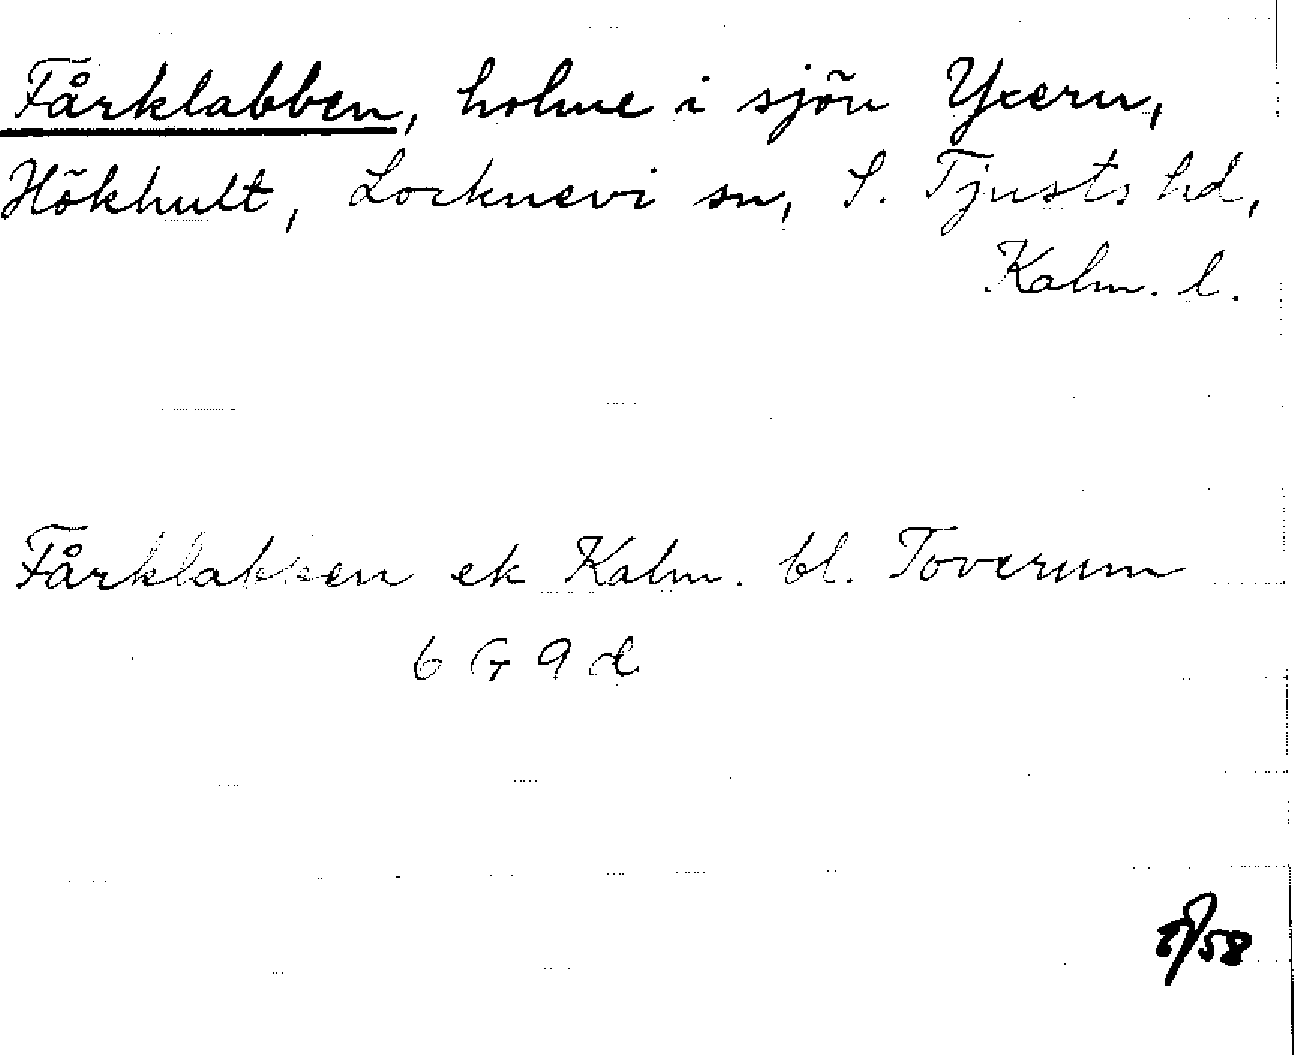 Fårklabben, holme i sjön Yxern,
Hökhult, Locknevi sn, S. Tjusts hd,
Kalm. l.
Fårklabben ek Kalm. bl. Toverum
6 G 9 d